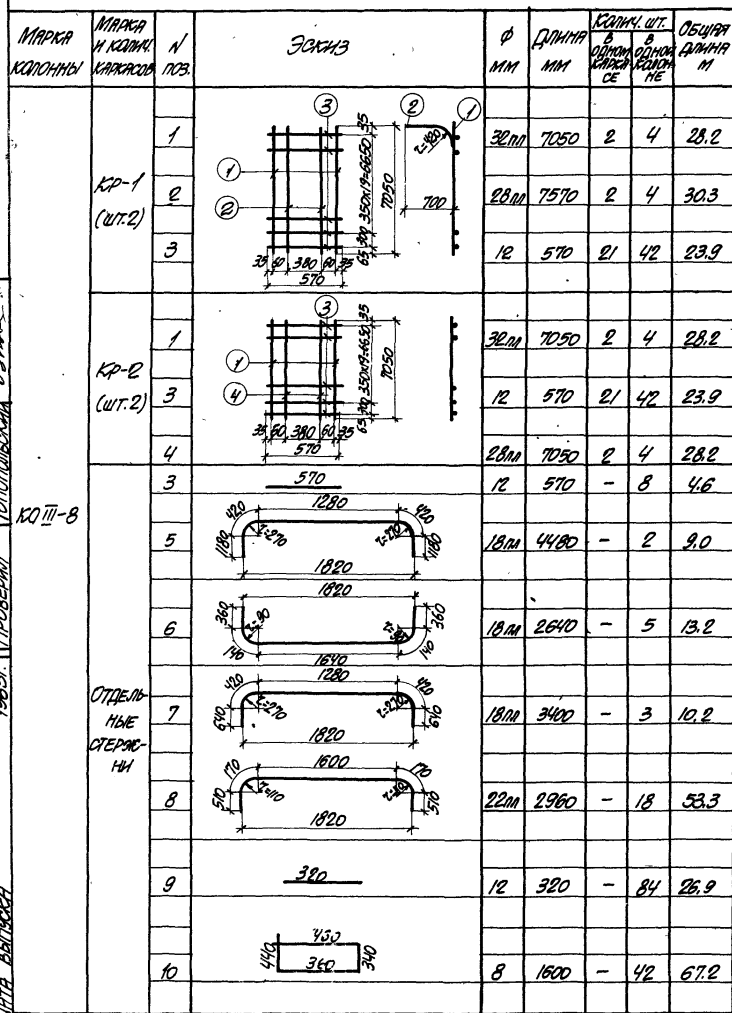 МАРКА КОЛОННЫ | МАРКА И КОЛИЧ. КАРКАСОВ | N ПОЗ. | ЭСКИЗ | Ф ММ | ДЛИНА ММ | КОЛИЧ. ШТ. В ОДНОМ КАРКАСЕ | В ОДНОЙ КОЛОННЕ | ОБЩАЯ ДЛИНА М
КОIII-8
КР-1 (ШТ.2)
3 2 1
1
2
35
350х19=6650
300
65
7050
r=480
700
35 60 380 60 35
570
1 | 32пл | 7050 | 2 | 4 | 28.2
2 | 28пл | 7570 | 2 | 4 | 30.3
3 | 12 | 570 | 21 | 42 | 23.9
КР-2 (ШТ.2)
3
1
4
35
350х19=6650
300
65
7050
35 60 380 60 35
570
1 | 32пл | 7050 | 2 | 4 | 28.2
3 | 12 | 570 | 21 | 42 | 23.9
4 | 28пл | 7050 | 2 | 4 | 28.2
ОТДЕЛЬ-
НЫЕ
СТЕРЖ-
НИ
3 | 570 | 12 | 570 | - | 8 | 4.6
420 1280 420
1180 r=270 r=270 1180
1820
5 | 18пл | 4480 | - | 2 | 9.0
1820
360 r=90 360
140 1640 140
6 | 18пл | 2640 | - | 5 | 13.2
420 1280 420
640 r=270 r=270 640
1820
7 | 18пл | 3400 | - | 3 | 10.2
170 1600 170
510 r=110 510
1820
8 | 22пл | 2960 | - | 18 | 53.3
9 | 320 | 12 | 320 | - | 84 | 26.9
430
440 360 340
10 | 8 | 1600 | - | 42 | 67.2
ПРОВЕРИЛ
ТОПОЛЬСКИЙ
ВЫПУСКА